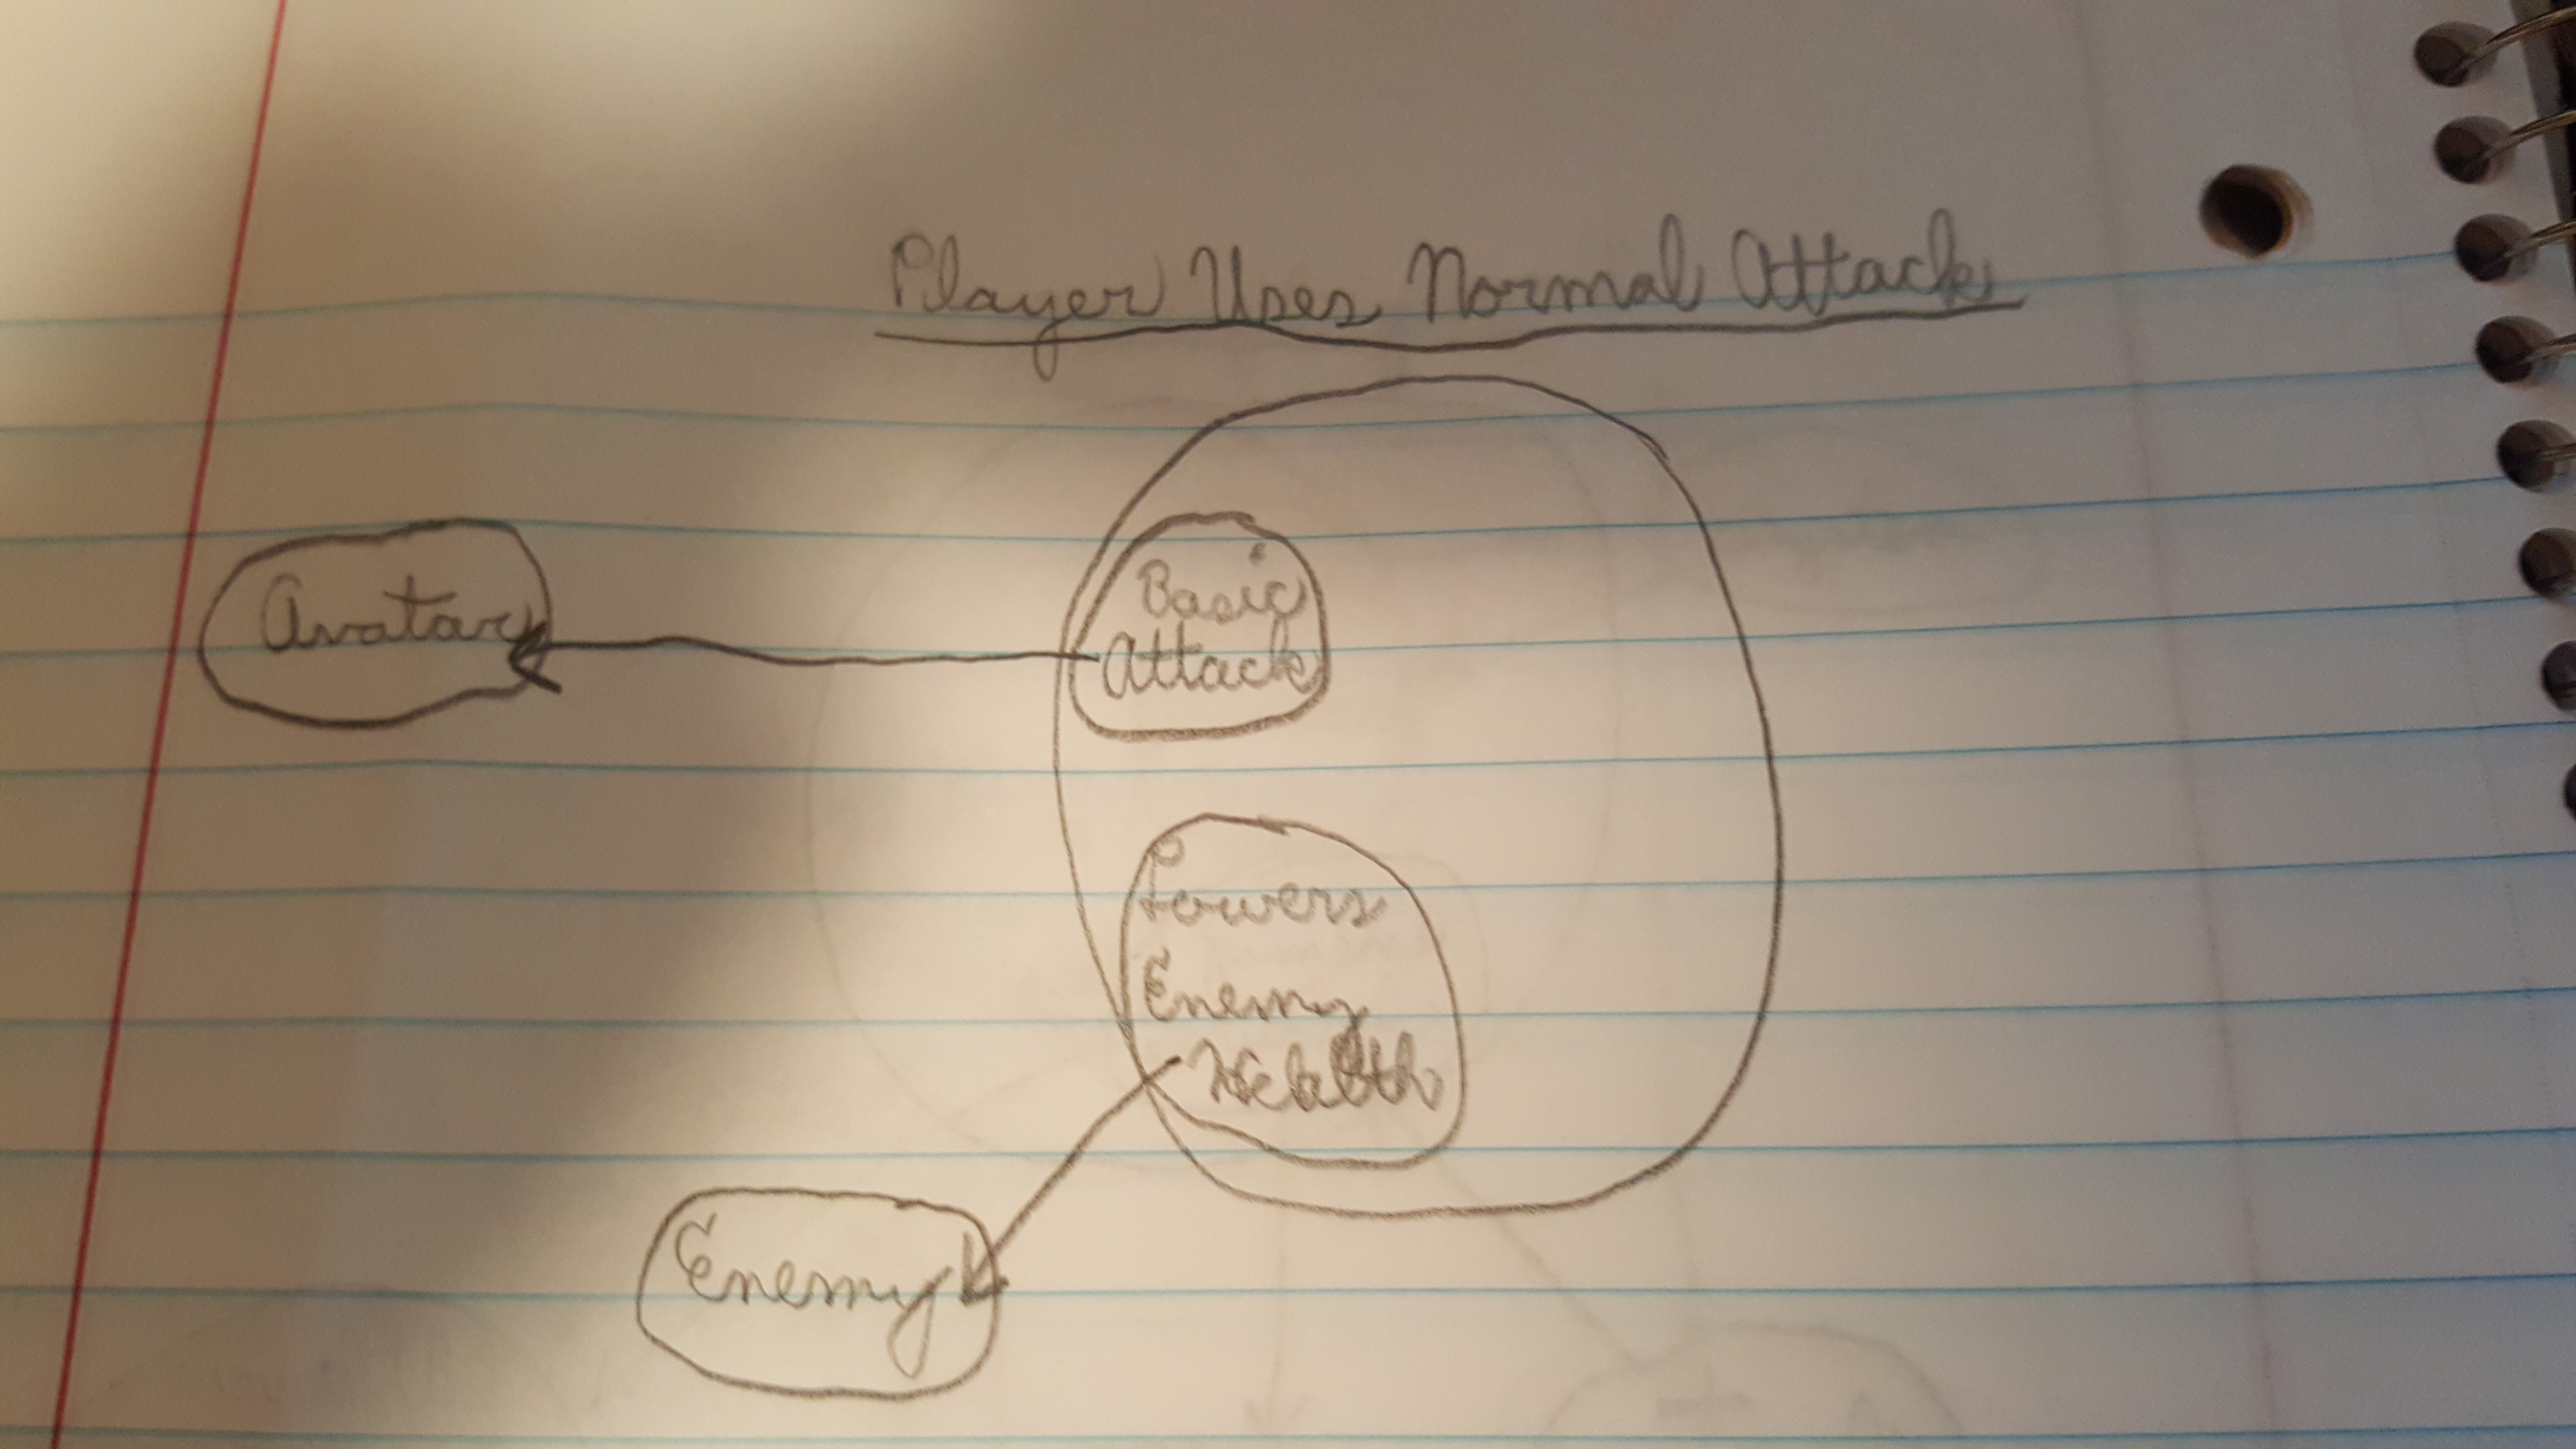 Player Uses Normal Attack
Basic
Avatar
Attack
Lowers
Enemy
Health
Enemy